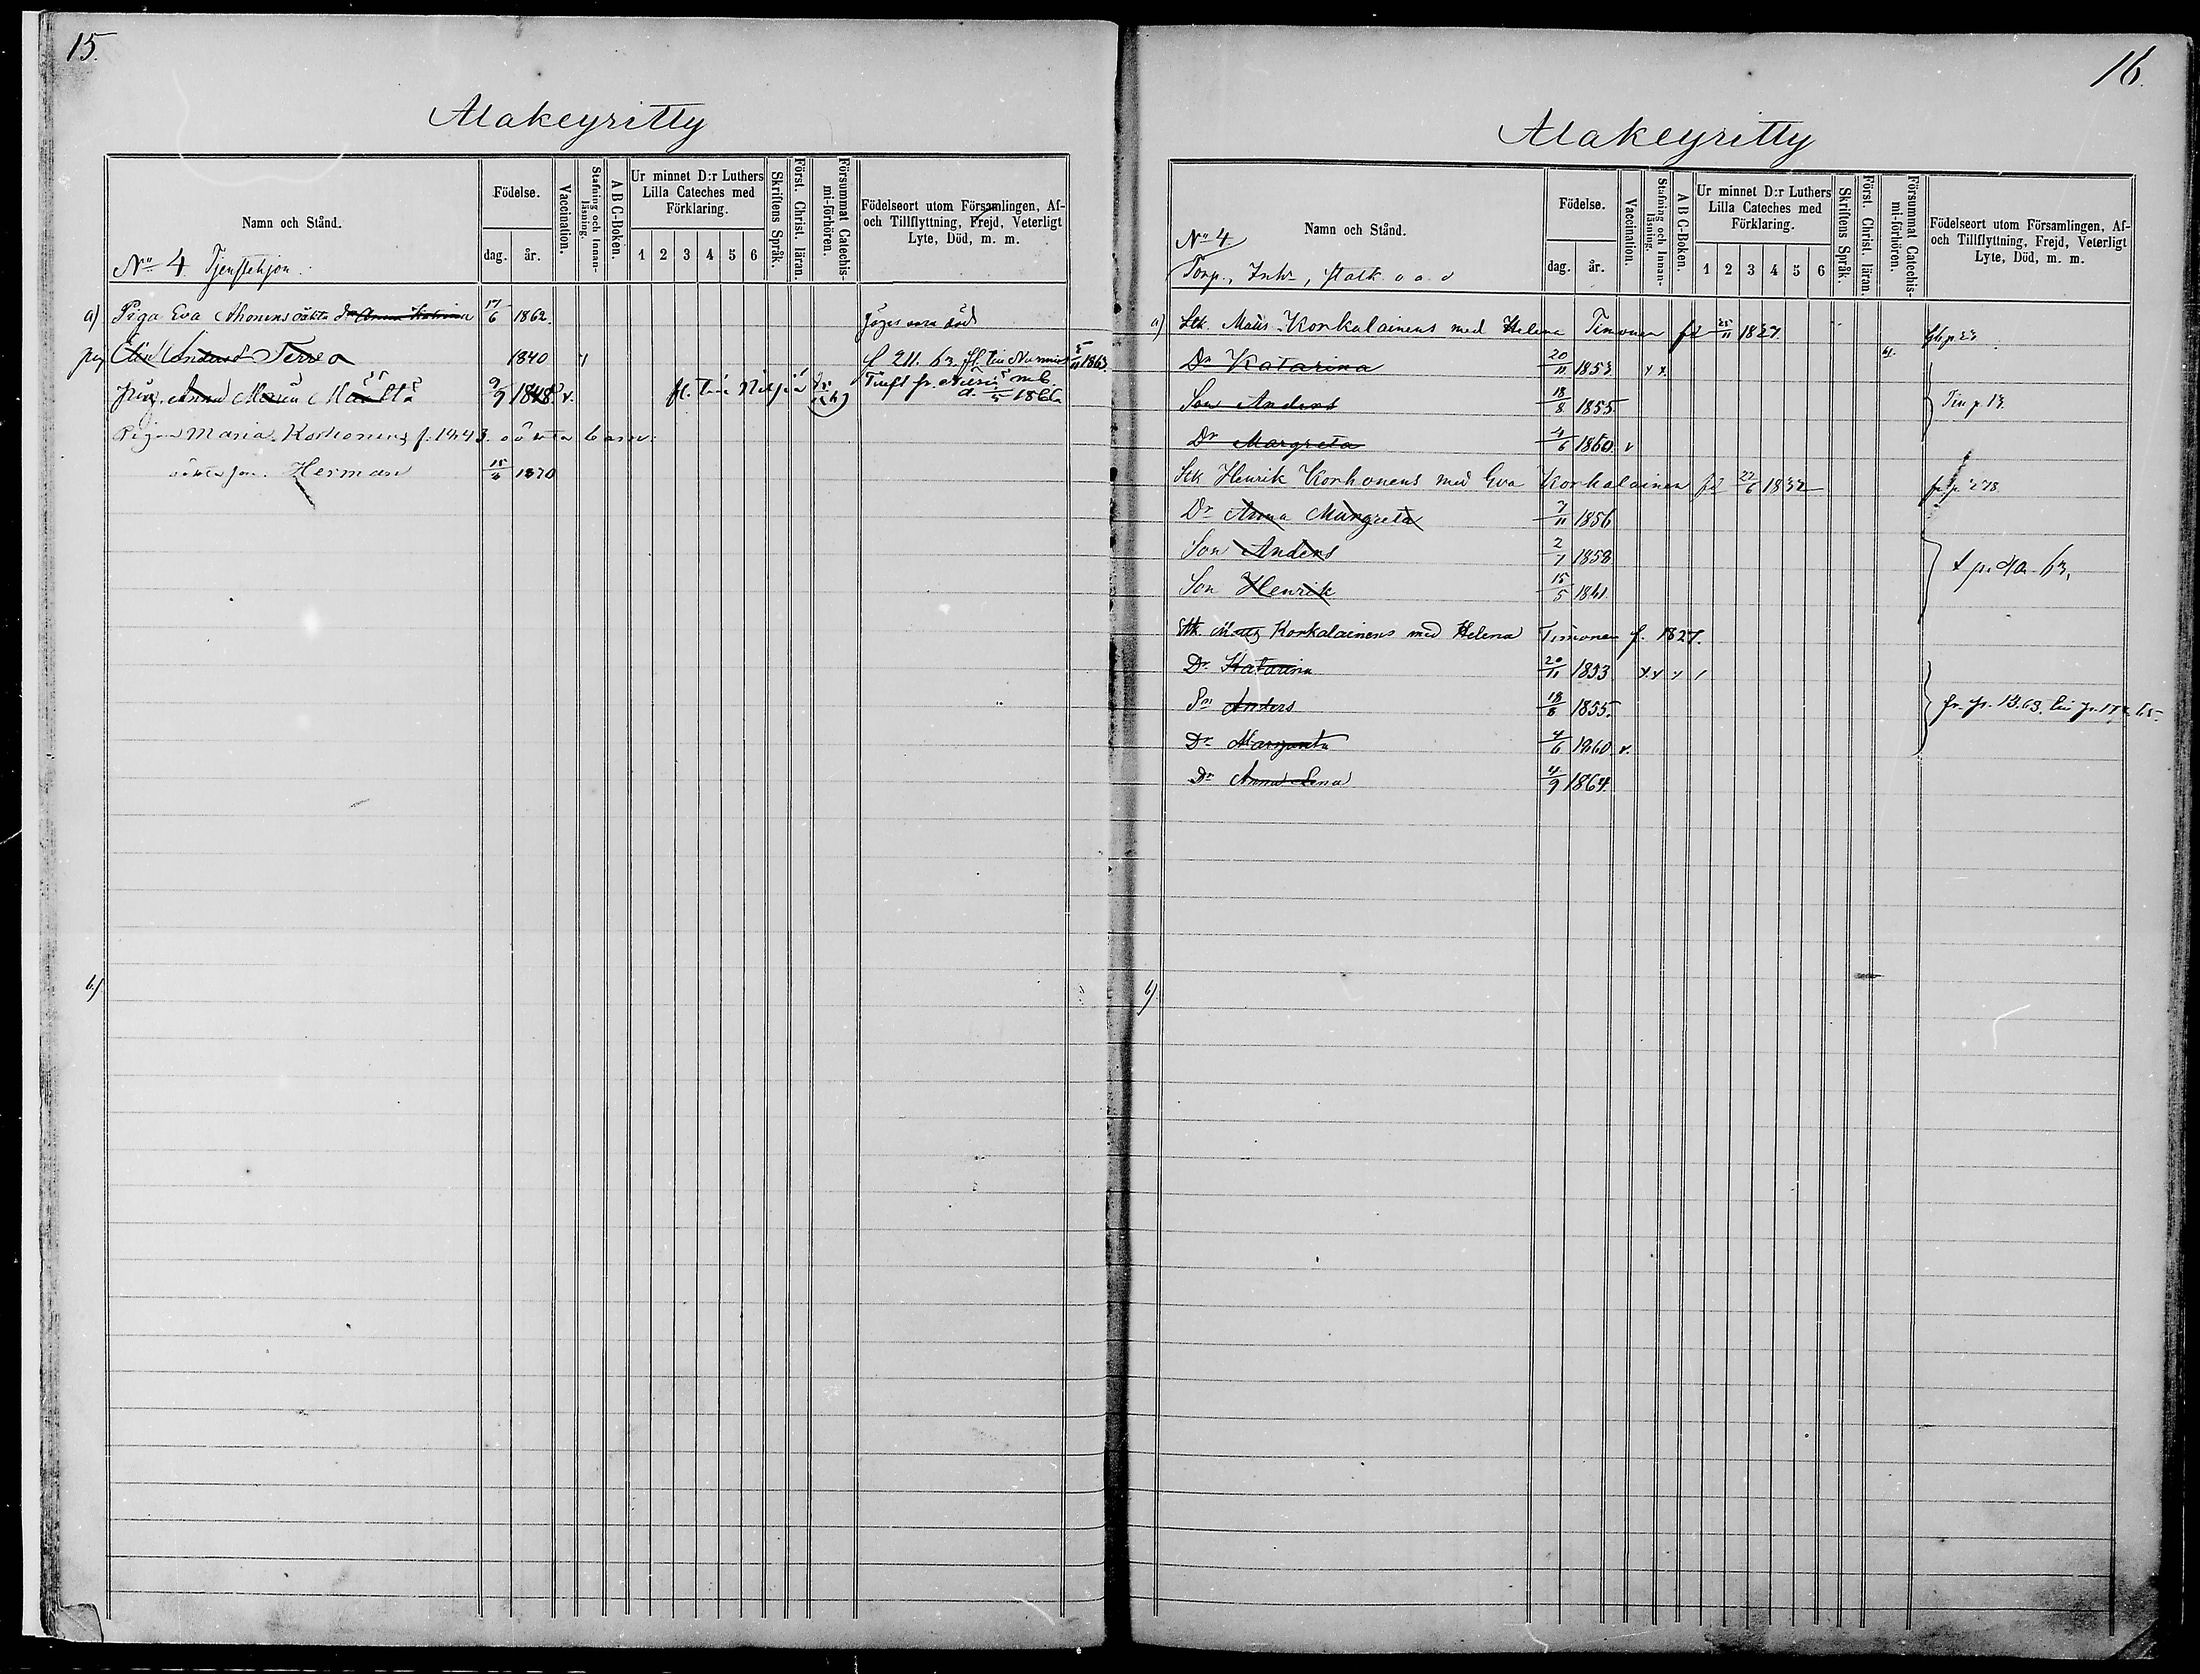 15.
Alakeyritty
Namn och Stånd.
Födelse.
dag. år.
Vaccination.
Stafning och Innanläsning.
A B C-Boken.
Ur minnet D:r Luthers
Lilla Cateches med
Förklaring.
1 2 3 4 5 6
Skriftens Språk.
Först. Christ. läran.
Försummat Catechismi-förhören.
Födelseort utom Församlingen, Af-
och Tillflyttning, Frejd, Veterligt
Lyte, Död, m. m.
No 4 Tjenstehjon.
a) Piga Eva oäkta dr Anna Katrina 17/6 1862. död
Anders 1840 f 211. 63 1863.
9/9 1848 v. fr.
Pigan Maria Korhonens f. 1843. oäkta barn:
oäkta son. Herman 15/4 1870
b)
16.
Alakeyritty
Namn och Stånd.
Födelse.
dag. år.
Vaccination.
Stafning och Innanläsning.
A B C-Boken.
Ur minnet D:r Luthers
Lilla Cateches med
Förklaring.
1 2 3 4 5 6
Skriftens Språk.
Först. Christ. läran.
Försummat Catechismi-förhören.
Födelseort utom Församlingen, Af-
och Tillflyttning, Frejd, Veterligt
Lyte, Död, m. m.
No 4
Torp., Inh., statk. o. a. d
a) Stk. Matts Korkalainens med Helena Timonen f2 25/11 1827.
Dr Katarina 20/11 1853
Son Anders 18/8 1855
Dr Margreta 4/6 1860. v
Stk Henrik Korhonens med Eva Korkalainen f2 22/6 1832
Dr Anna Margreta 7/11 1856
Son Anders 2/1 1858
Son Henrik 15/5 1861.
Stk Matts Korkalainens med Helena Timonen f. 1827.
Dr Katarina 20/11 1853
Sn Anders 18/8 1855.
Dr Margareta 4/6 1860. v.
Dr Anna Lena 4/9 1864.
b)